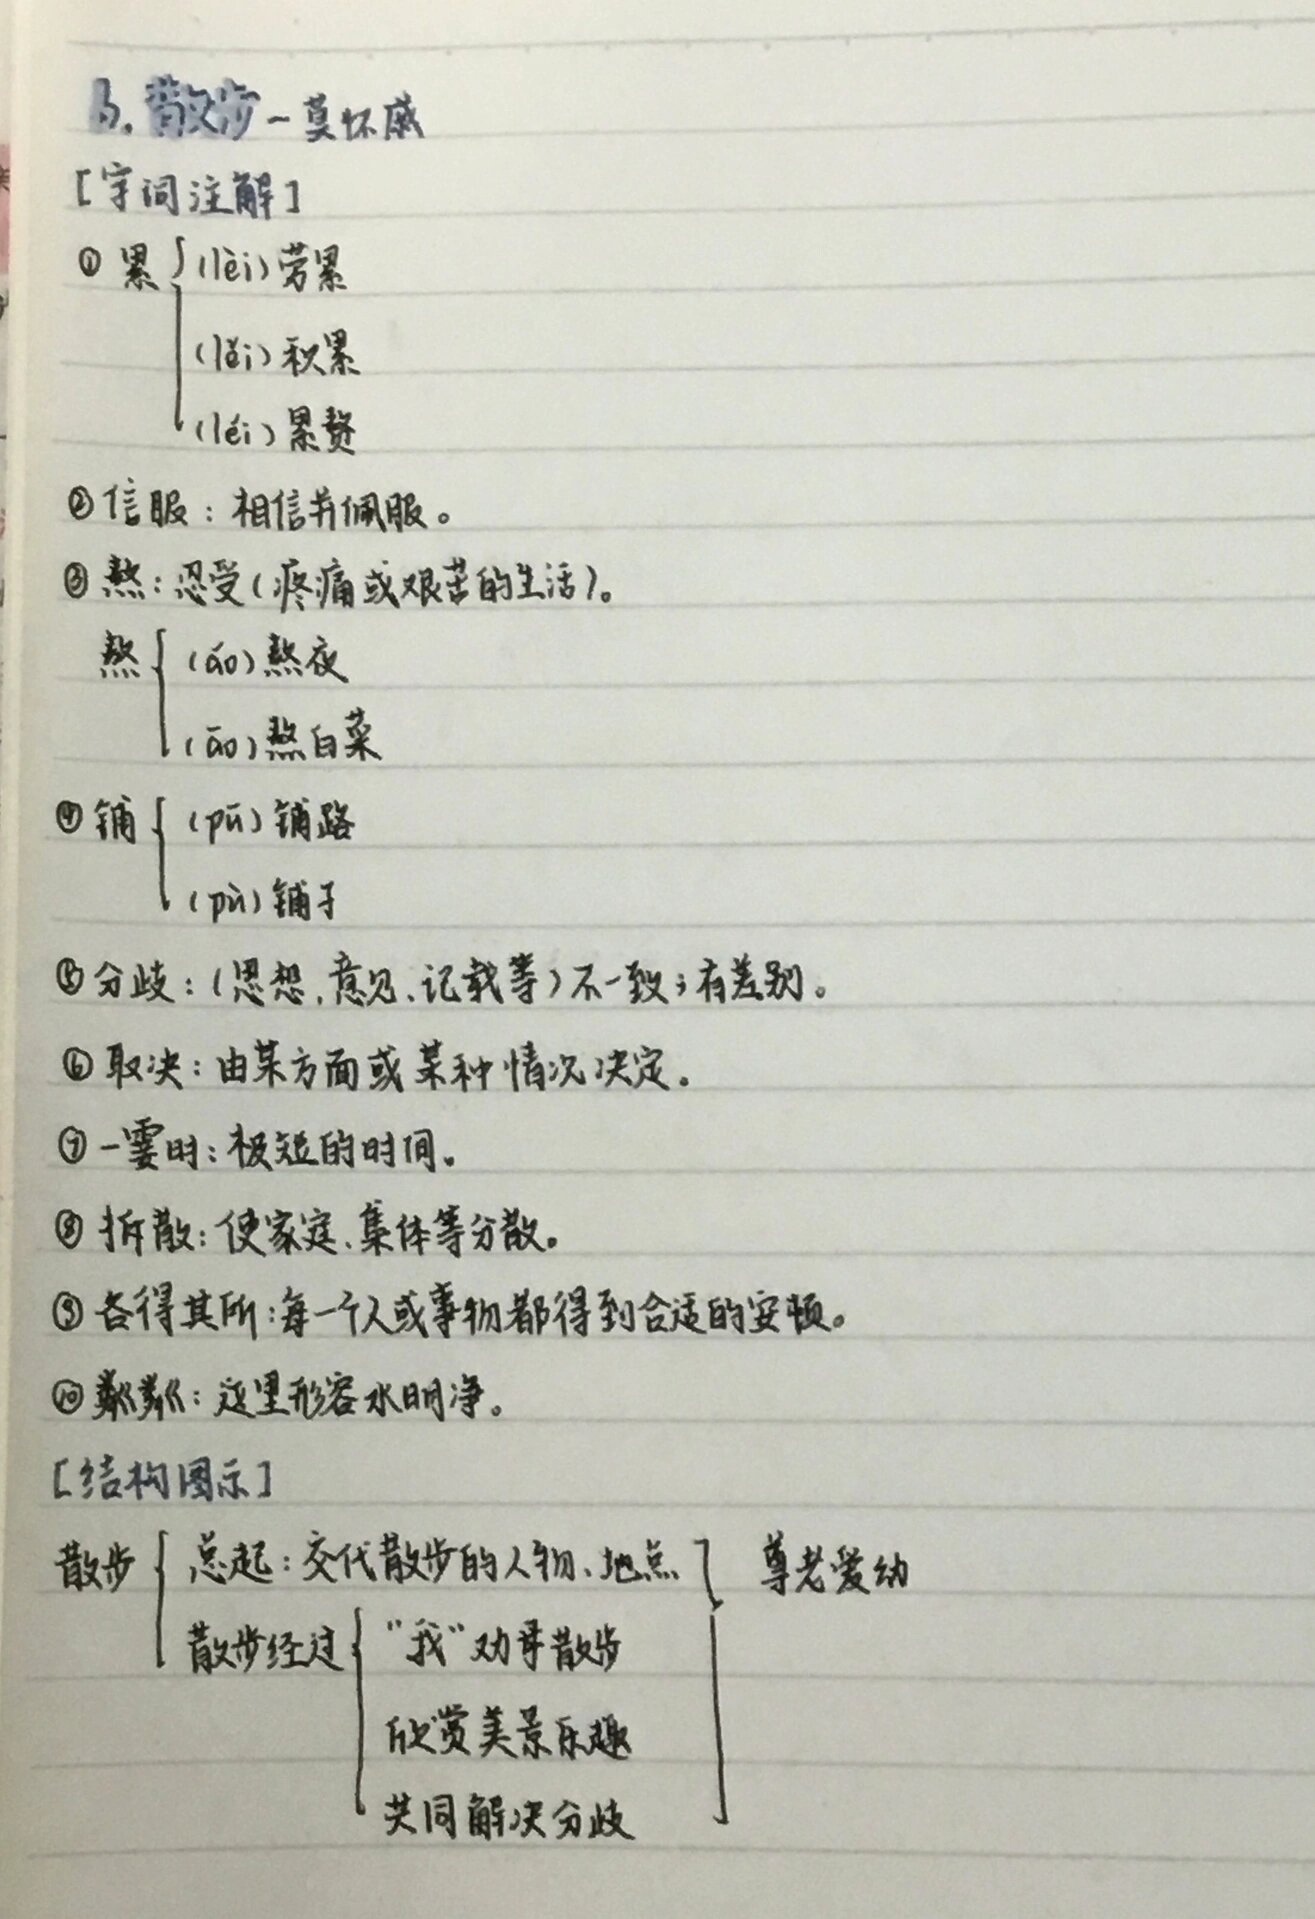 6. 散步－莫怀戚
[字词注解]
① 累{(lèi)劳累
(lěi)积累
(léi)累赘
② 信服：相信并佩服。
③ 熬：忍受(疼痛或艰苦的生活)。
熬{(áo)熬夜
(āo)熬白菜
④ 铺{(pū)铺路
(pù)铺子
⑤ 分歧：(思想、意见、记载等)不一致；有差别。
⑥ 取决：由某方面或某种情况决定。
⑦ 一霎时：极短的时间。
⑧ 拆散：使家庭、集体等分散。
⑨ 各得其所：每一个人或事物都得到合适的安顿。
⑩ 粼粼：这里形容水明净。
[结构图示]
散步{总起：交代散步的人物、地点] 尊老爱幼
散步经过{"我"劝母散步
欣赏美景乐趣
共同解决分歧